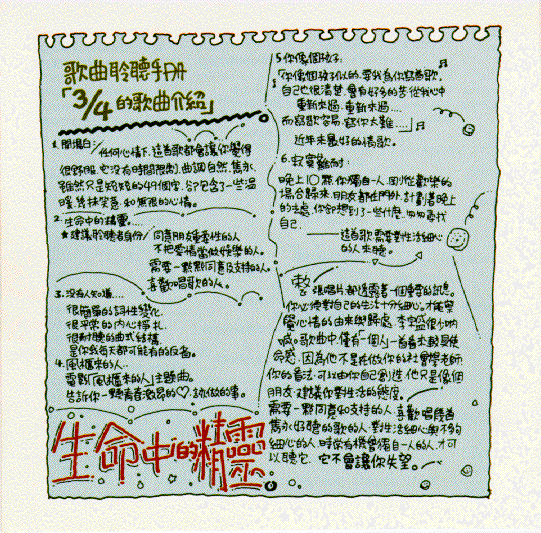 歌曲聆聽手冊
「3/4的歌曲介紹」
1. 開場白:
任何心情下, 這首歌都會讓你覺得
很舒服, 它沒有時間限制, 曲調自然、雋永,
雖然只是短短的49個字, 卻包含了一些溫
暖、幾抹笑意, 和無限的心情。
2. 生命中的精靈...
★建議聆聽者身份: 同意朋友重要性的人
不把愛情當做娛樂的人。
需要一點點同意及支持的人。
喜歡唱歌的人。
3. 沒有人知道....
很簡單的詞性變化,
很平常的內心掙扎,
很耐聽的曲式結構,
是你我每天都可能有的反省。
4. 風櫃來的人...
電影「風櫃來的人」主題曲。
告訴你一點青春激昂的♡, 該做的事。
生命中的精靈
5. 你像個孩子:
「你像個孩子似的, 要我為你寫首歌,
自己也很清楚, 會有好多的夢從我心中
重新來過, 重新來過....
而寫歌容易, 寫你太難....」
近年來最好的情歌。
6. 寂寞難耐:
晚上10點, 你獨自一人, 剛從歡樂的
場合歸來, 朋友都在門外, 計劃著晚上
的去處, 你卻想到了一些什麼, 而四處尋找
自己.
——這首歌需要對生活細心
的人來聽。
整張唱片都透露著一個重要的訊息.
你必須對自己的生活十分細心, 才能察
覺心情的由來與歸處. 李宗盛很少吶
喊。歌曲中, 僅有「一個人」一首看來較具使
命感, 因為他不是在做你的社會學老師
你的看法, 可以由你自己創造, 他只是像個
朋友, 建議你對生活的態度。
需要一點同意和支持的人, 喜歡唱幾首
雋永好聽的歌的人, 對生活細心與不夠
細心的人, 時常有機會獨自一人的人, 才可
以聽它, 它不會讓你失望。